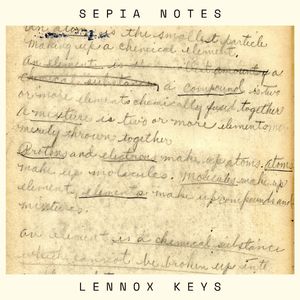 SEPIA NOTES
is the smallest particle
making up a chemical element.
An element is the a
chemical substance, a compound is two
or more elements chemically fused together
A mixture is two or more elements
merely thrown together
Protons and electrons make up atoms. atoms
make up molecules. Molecules make up
elements, elements make up compounds and
mixtures.
An element is a chemical substance
which cannot be broken up into
LENNOX KEYS